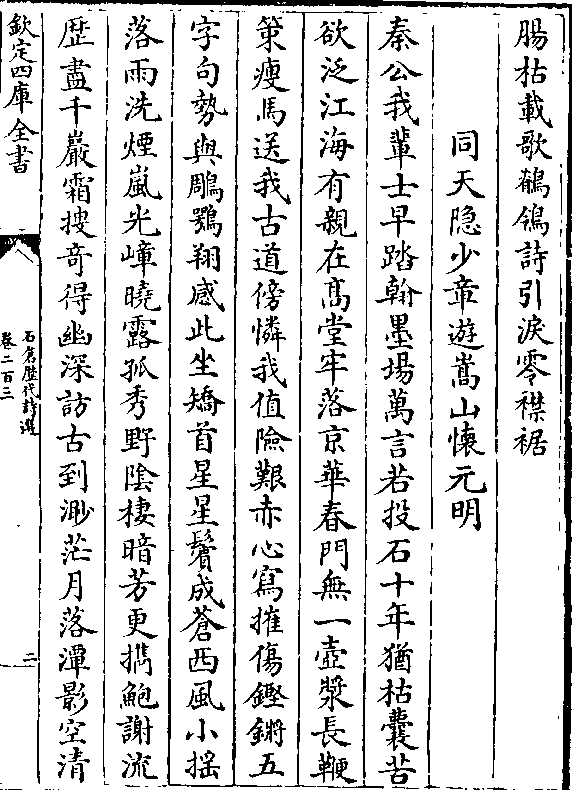 腸枯載歌鶺鴒詩引淚零襟裾
同天隱少章遊嵩山懷元明
秦公我輩士早踏翰墨場萬言若投石十年猶枯囊苦
欲泛江海有親在髙堂牢落京華春門無一壺漿長鞭
策瘦馬送我古道傍憐我值險艱赤心寫摧傷鏗鏘五
字句勢與鵰鶚翔感此坐矯首星星鬢成蒼西風小摇
落雨洗煙嵐光嶂曉露孤秀野陰棲暗芳更擕鮑謝流
歴盡千巖霜搜奇得幽深訪古到渺茫月落潭影空清
欽定四庫全書
石倉歴代詩選
卷二百三
二